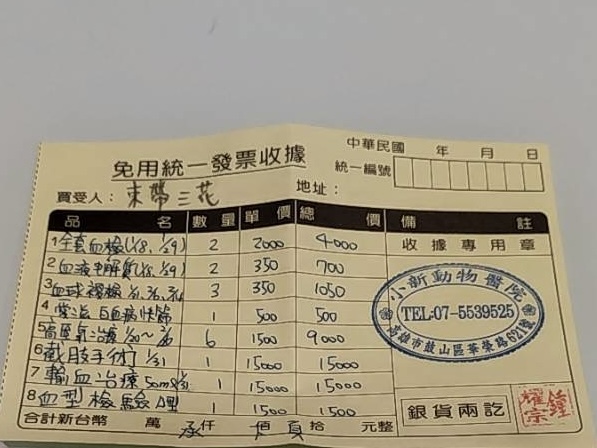 中華民國 年 月 日
免用統一發票收據
統一編號
買受人：末帶三花 地址：
品名 數量 單價 總價 備註
1 全套血檢(1/8、1/29) 2 2000 4000 收據專用章
2 血液電解質(1/8、1/29) 2 350 700
3 血球複檢 3 350 1050
4 愛滋白血病快篩 1 500 500
5 高壓氧治療 6 1500 9000
6 截肢手術 1/31 1 15000 15000
7 輸血治療 50ml 1/31 1 15000 15000
8 血型檢驗 A型 1 1500 1500
小新動物醫院
TEL:07-5539525
高雄市鼓山區華榮路621號
銀貨兩訖
鐘耀宗
合計新台幣 萬 仟 佰 拾 元整
承 頁